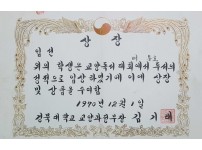 상 장
입 선
위의 학생은 교양독서 대회에서 두서의
성적으로 입상 하였기에 이에 상장
및 상품을 수여함
1990년 12월 1일
경북대학교 교양과정부장 김 기